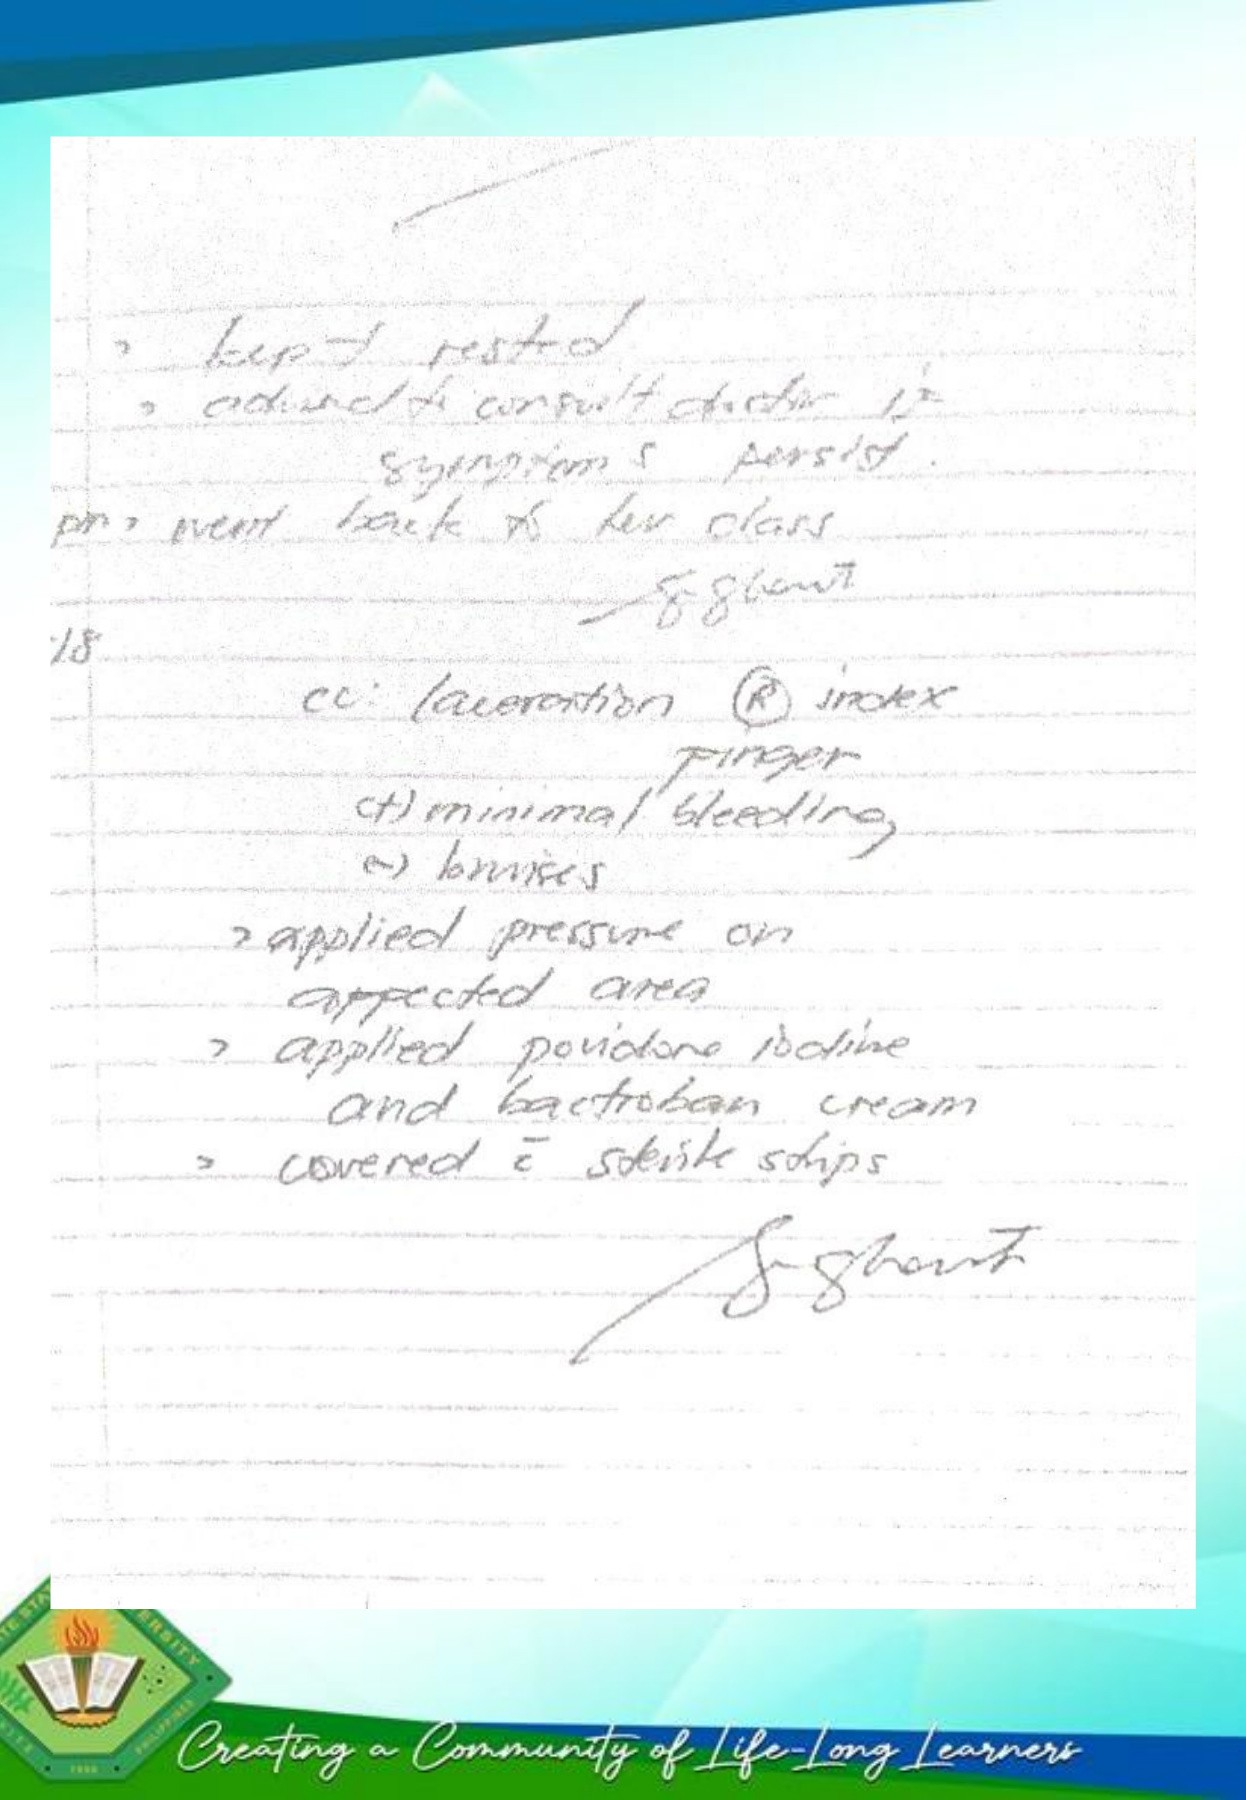 > kept rested
> advised to consult doctor if
symptoms persist.
pm > went back to her class
18
cc: laceration Ⓡ index
finger
(+) minimal bleeding
(-) bruises
> applied pressure on
affected area
> applied povidone iodine
and bactroban cream
> covered c̄ sterile strips
ERSITY
PHILIPPINES
Creating a Community of Life-Long Learners